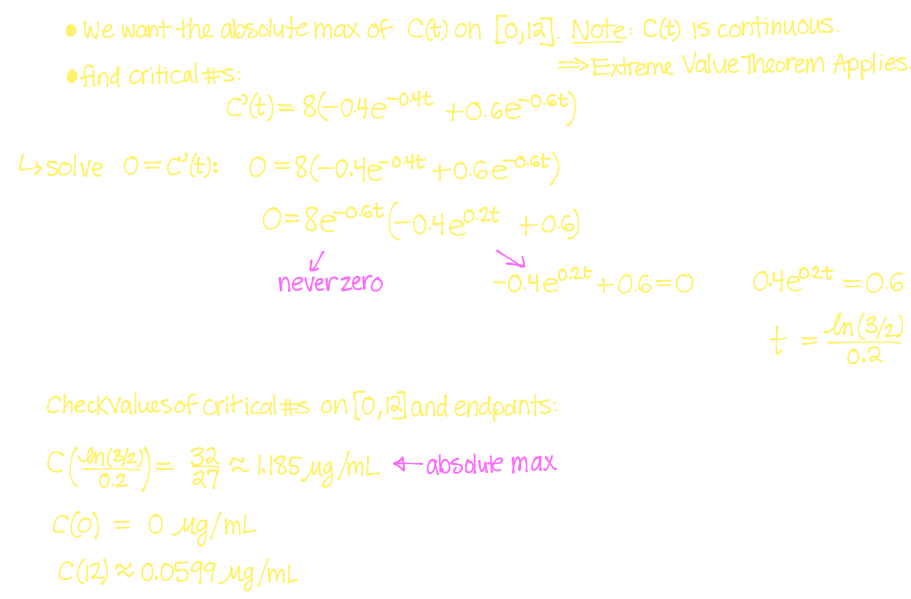 • We want the absolute max of C(t) on [0,12]. Note: C(t) is continuous.
⇒ Extreme Value Theorem Applies.
• find critical #s:
C'(t) = 8(-0.4e^{-0.4t} + 0.6e^{-0.6t})
↳ solve 0 = C'(t): 0 = 8(-0.4e^{-0.4t} + 0.6e^{-0.6t})
0 = 8e^{-0.6t}(-0.4e^{0.2t} + 0.6)
never zero -0.4e^{0.2t} + 0.6 = 0 0.4e^{0.2t} = 0.6
t = ln(3/2)/0.2
Check values of critical #s on [0,12] and endpoints:
C(ln(3/2)/0.2) = 32/27 ≈ 1.185 µg/mL ← absolute max
C(0) = 0 µg/mL
C(12) ≈ 0.0599 µg/mL